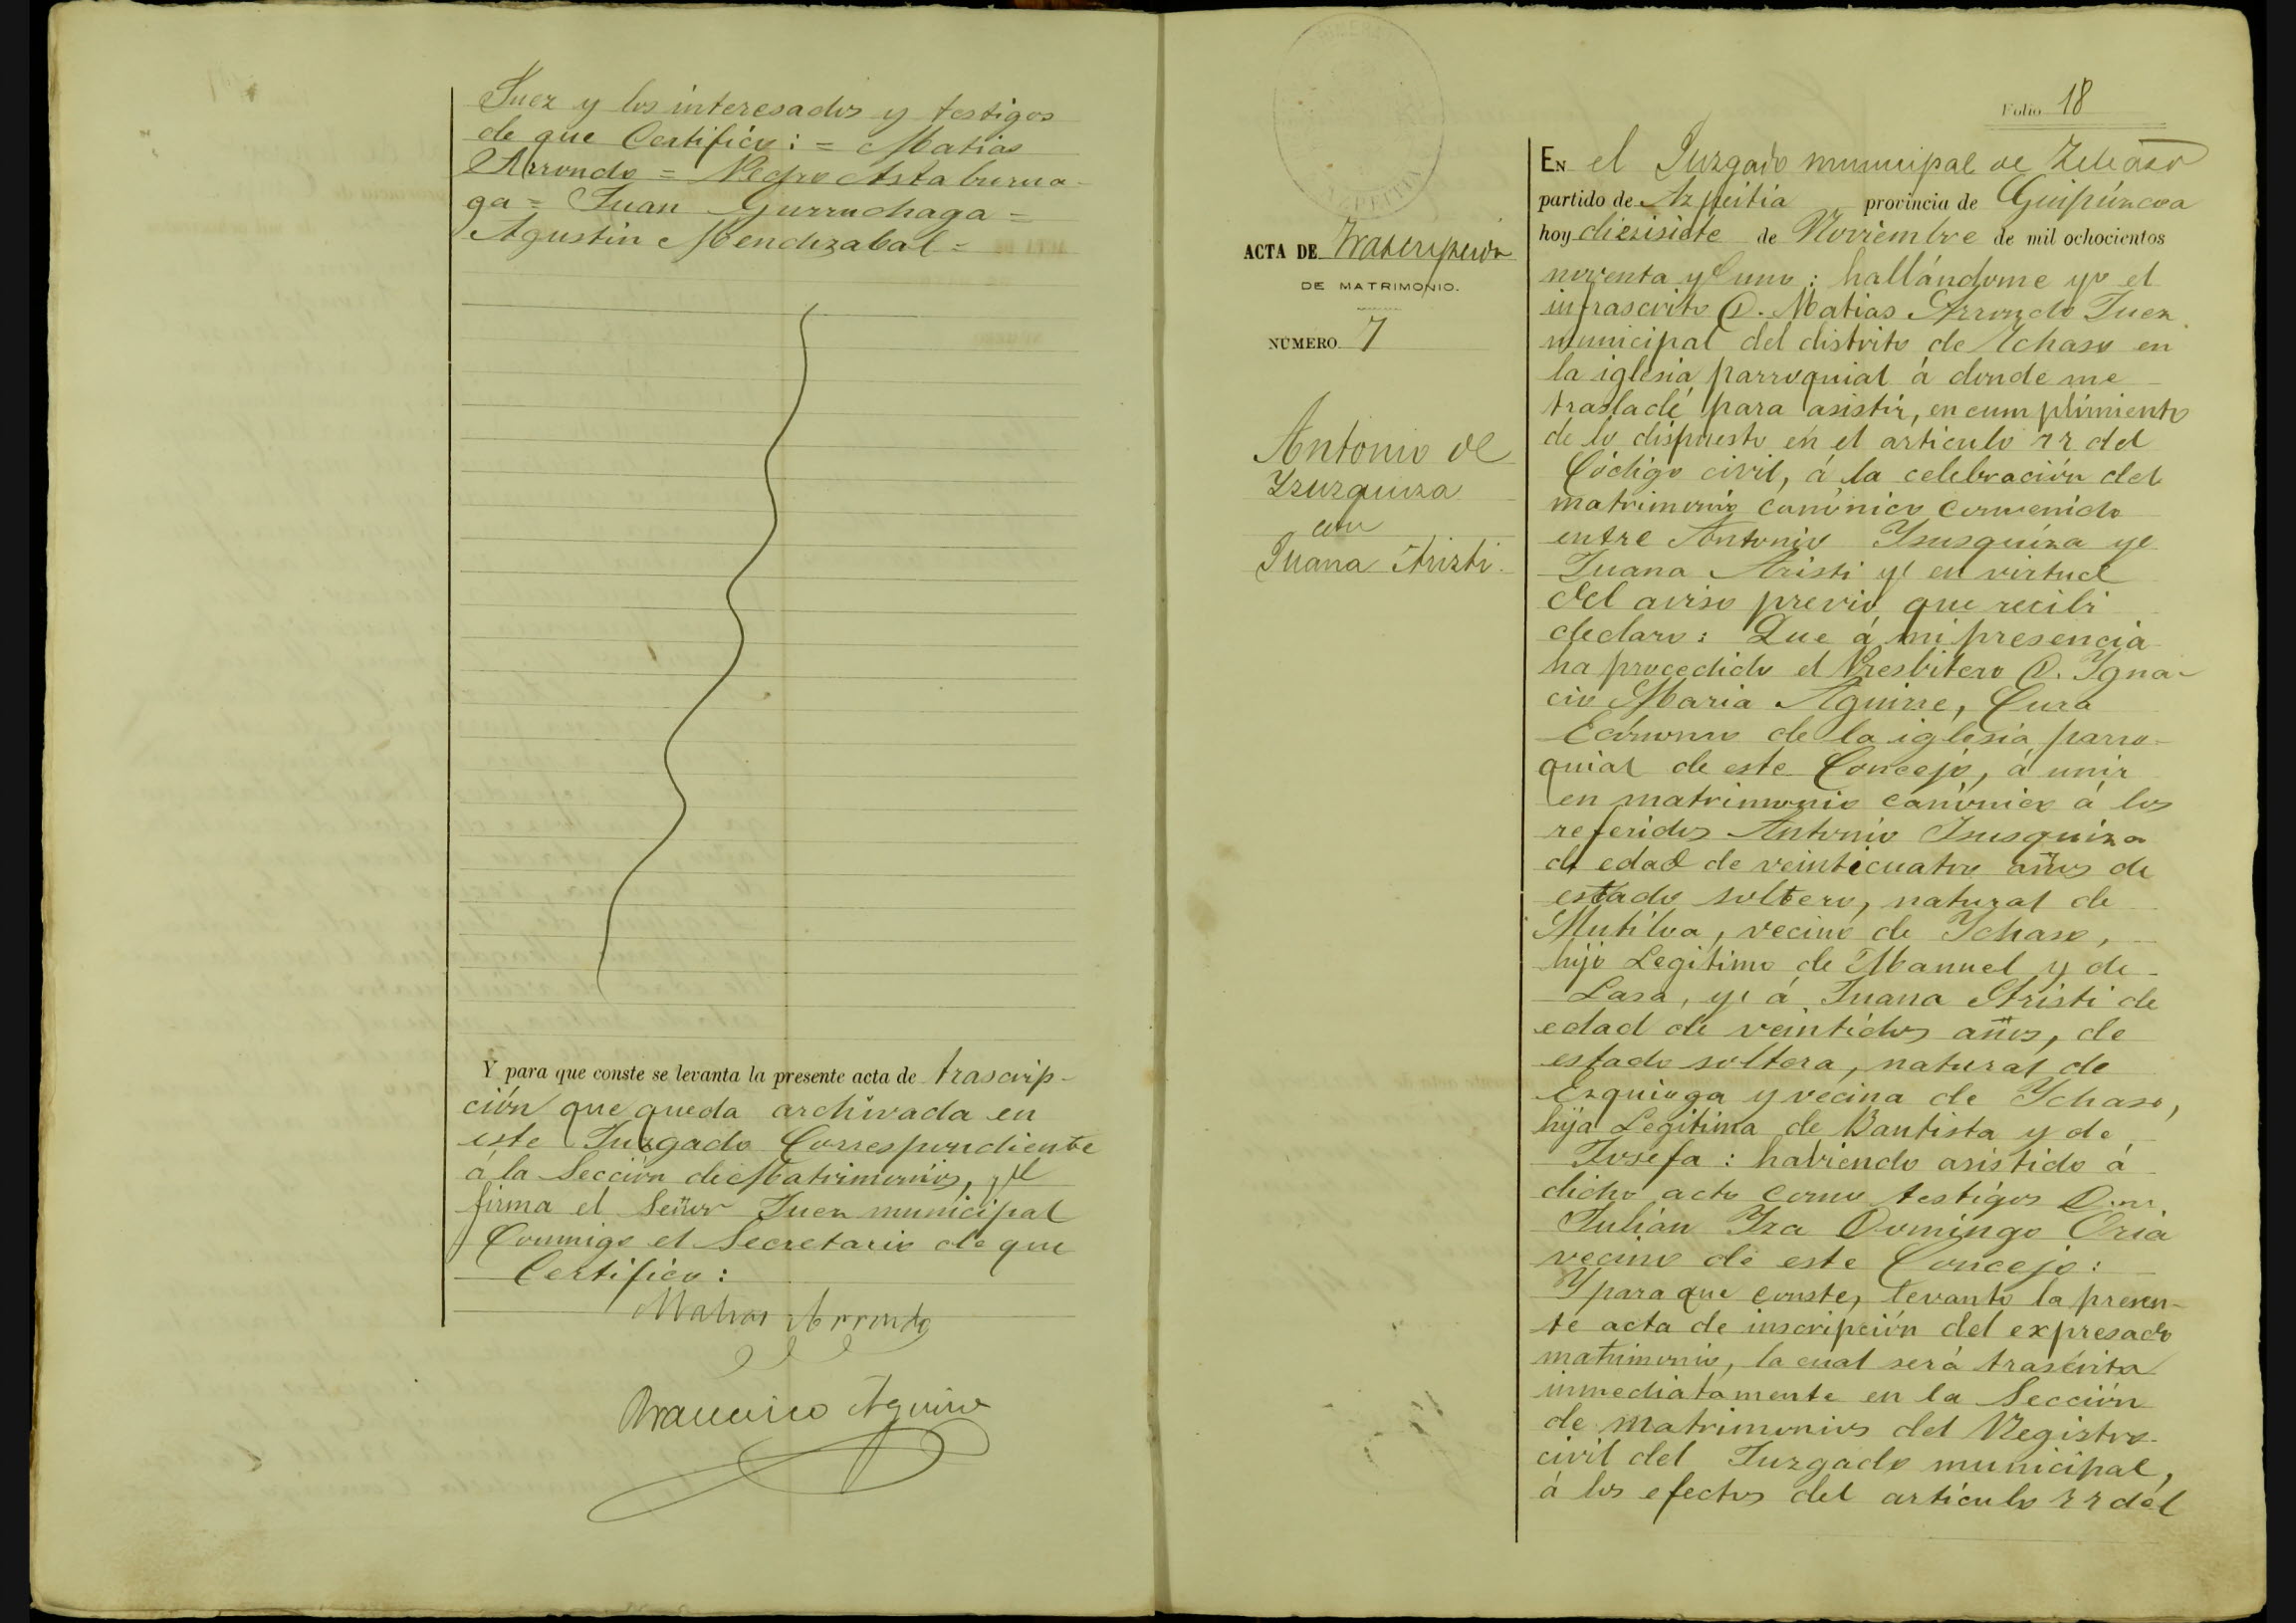 Juez y los interesados y testigos
de que Certifico: = Matias
Arrondo = Pedro Astaburua-
ga = Juan Gurruchaga =
Agustin Mendizabal =
Y para que conste se levanta la presente acta de trascrip-
ción que queda archivada en
este Juzgado Correspondiente
á la Sección de Matrimonios, y
firma el Señor Juez municipal
Conmigo el Secretario de que
Certifico:
Matias Arrondo
Francisco Aguirre
Folio 18
ACTA DE Trascripción
DE MATRIMONIO.
NÚMERO 7
Antonio de
Yzuzquiza
con
Juana Arizti.
EN el Juzgado municipal de
partido de Azpeitia provincia de Guipúzcoa
hoy diezisiete de Noviembre de mil ochocientos
noventa y uno: hallándome yo el
infrascrito D. Matias Arrondo Juez
municipal del distrito de Ichaso en
la iglesia parroquial á donde me
trasladé para asistir, en cumplimiento
de lo dispuesto en el articulo 77 del
Código civil, á la celebración del
matrimonio canónico convenido
entre Antonio Ysusquiza y
Juana Aristi y en virtud
del aviso previo que recibi
declaro: Que á mi presencia
ha procedido el Presbitero D. Ygna-
cio Maria Aguirre, Cura
Ecónomo de la iglesia parro-
quial de este Concejo, á unir
en matrimonio canónico á los
referidos Antonio Isusquiza
de edad de veinticuatro años de
estado soltero, natural de
Mutiloa, vecino de Ychaso,
hijo Legitimo de Manuel y de
Lasa, y á Juana Aristi de
edad de veintidos años, de
estado soltera, natural de
Ezquioga y vecina de Ychaso,
hija Legitima de Bautista y de
Josefa: habiendo asistido á
dicho acto como testigos D.
Julián Yza Domingo Oria
vecino de este Concejo:
Y para que conste, levanto la presen-
te acta de inscripción del expresado
matrimonio, la cual será trascrita
inmediatamente en la Sección
de matrimonios del Registro
civil del Juzgado municipal,
á los efectos del articulo 77 del